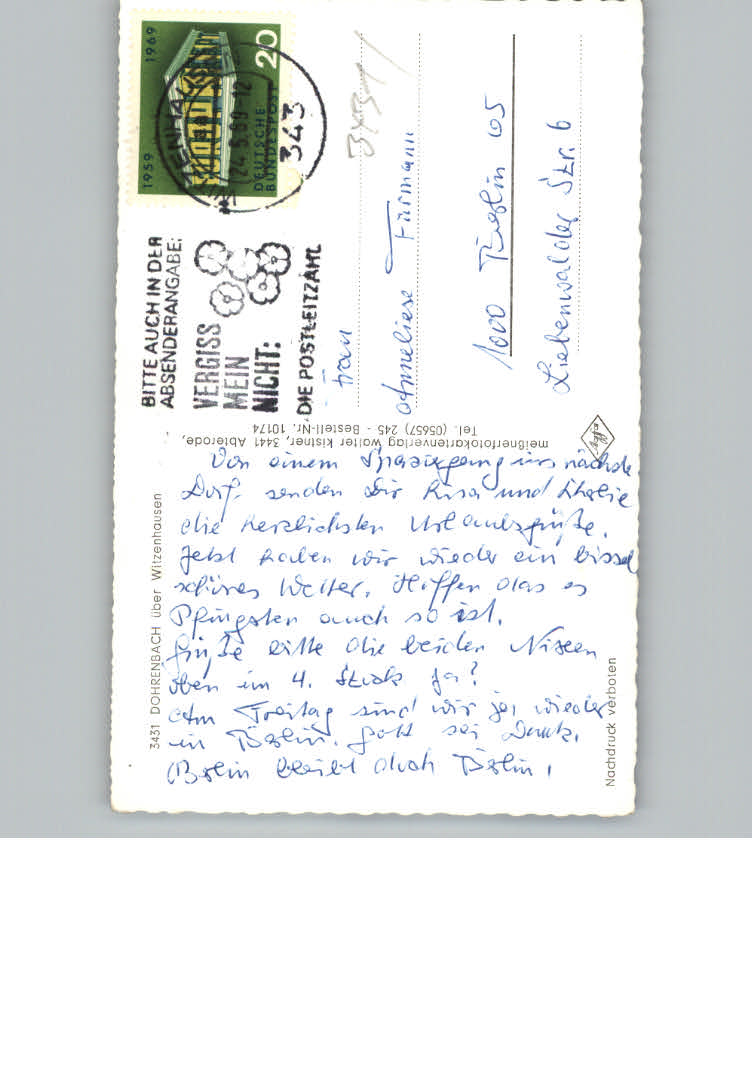 1959 1969
20
DEUTSCHE
BUNDESPOST
24.5.69-12
343
BITTE AUCH IN DER
ABSENDERANGABE:
VERGISS
MEIN
NICHT:
DIE POSTLEITZAHL
Frau
Anneliese Fürmann
1000 Berlin 65
Liebenwalder Str. 6
meißnerfotokartenverlag Walter Kistner, 3441 Abterode,
Tel. (05657) 245 - Bestell-Nr. 10174
Agfa
3431 DOHRENBACH über Witzenhausen
Von einem Spaziergang ins nächste
Dorf senden Dir und
die herzlichsten Urlaubsgrüße.
Jetzt haben wir wieder ein bissel
schönes Wetter. Hoffen das es
Pfingsten auch so ist.
Grüße bitte die beiden
oben im 4. Stock ja?
Am Freitag sind wir ja wieder
in Berlin. Gott sei Dank.
Berlin bleibt doch Berlin!
Nachdruck verboten